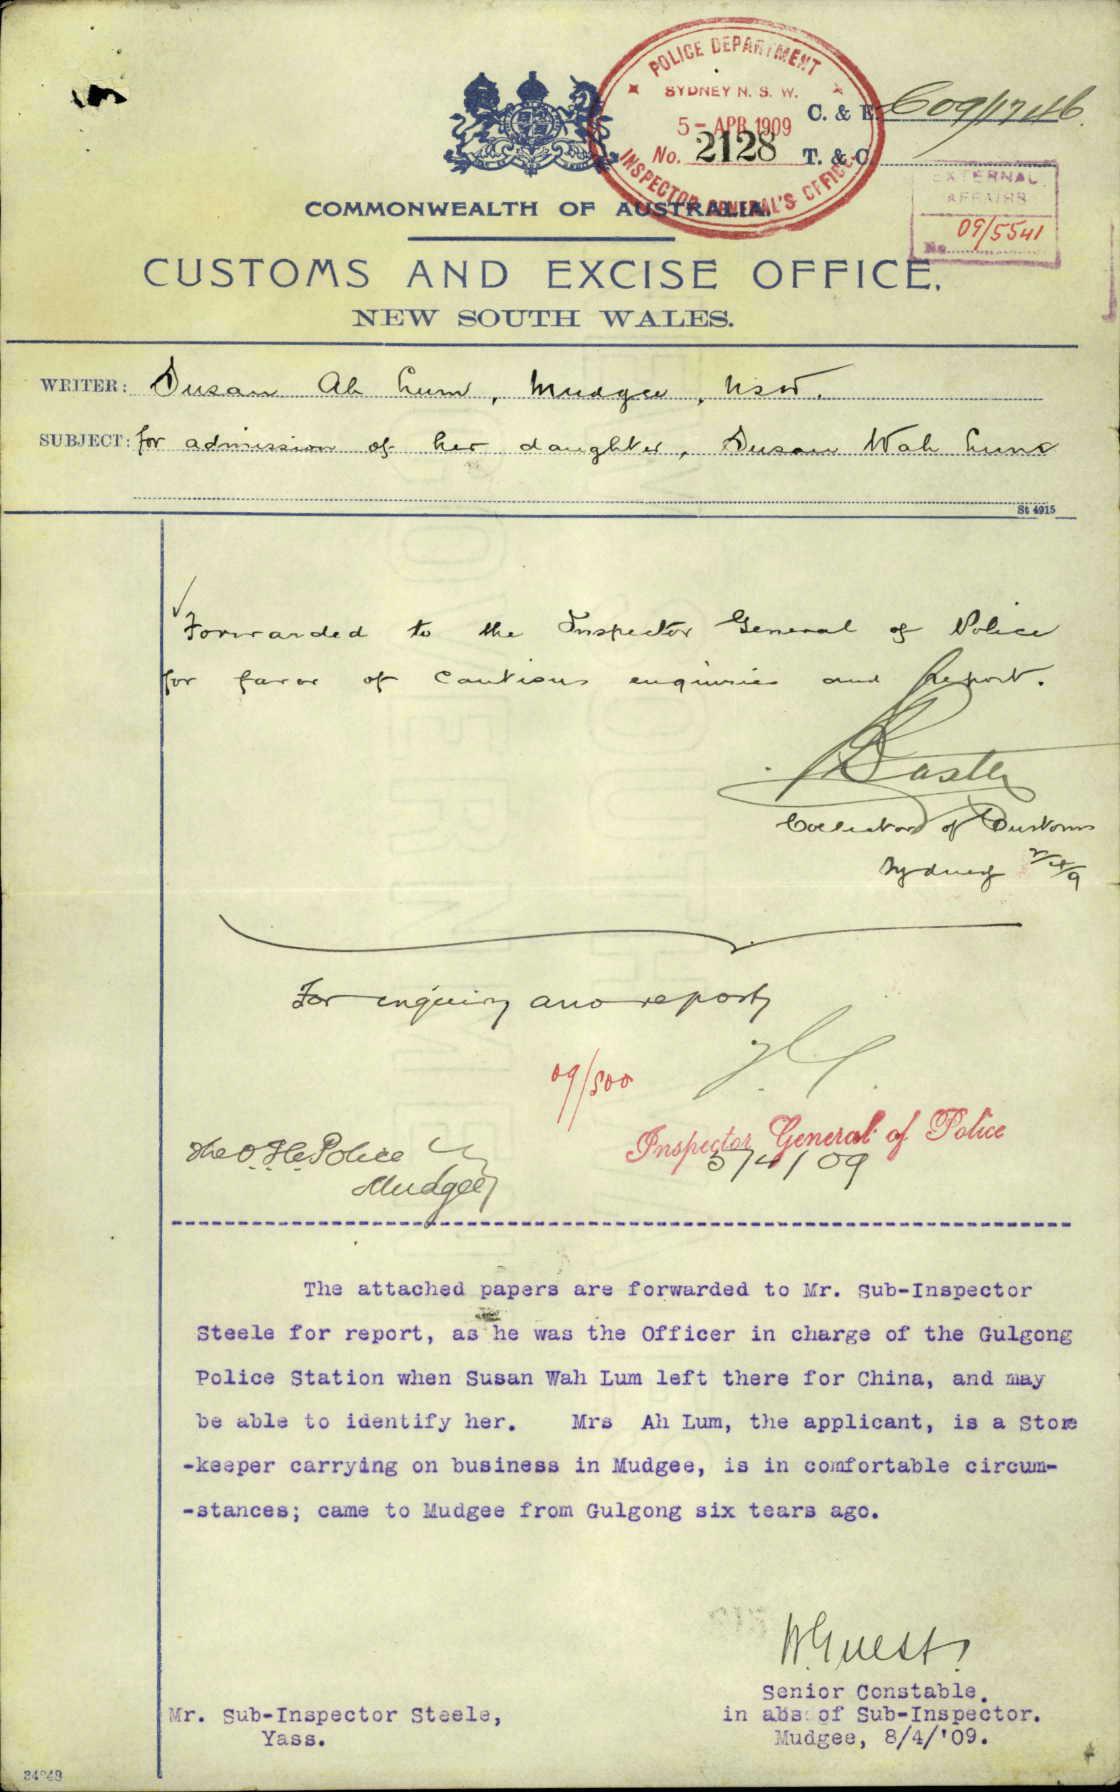 POLICE DEPARTMENT
SYDNEY N. S. W.
5 - APR 1909
No. 2128
INSPECTOR GENERAL'S OFFICE
C. & E. C09/1746
T. & C.
EXTERNAL
AFFAIRS
No. 09/5541
COMMONWEALTH OF AUSTRALIA.
CUSTOMS AND EXCISE OFFICE,
NEW SOUTH WALES.
WRITER: Susan Ah Lum, Mudgee, NSW.
SUBJECT: for admission of her daughter, Susan Wah Lum
St 4915
Forwarded to the Inspector General of Police
for favor of cautious enquiries and Report.
Collector of Customs
Sydney 2/4/9
For inquiry and report
09/500
Inspector General of Police
5/4/09
The O. I/C Police
Mudgee
The attached papers are forwarded to Mr. Sub-Inspector
Steele for report, as he was the Officer in charge of the Gulgong
Police Station when Susan Wah Lum left there for China, and may
be able to identify her. Mrs Ah Lum, the applicant, is a Store
-keeper carrying on business in Mudgee, is in comfortable circum-
-stances; came to Mudgee from Gulgong six tears ago.
W Guest
Senior Constable.
in abs: of Sub-Inspector.
Mudgee, 8/4/'09.
Mr. Sub-Inspector Steele,
Yass.